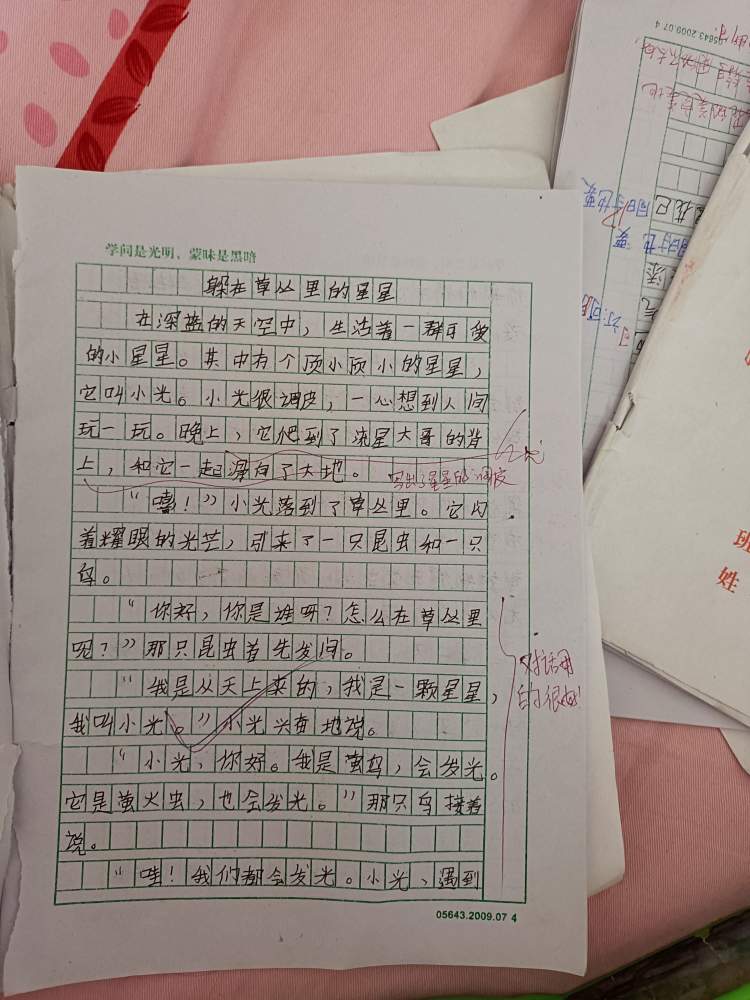 学问是光明，蒙昧是黑暗
躲在草丛里的星星
在深蓝的天空中，生活着一群可爱
的小星星。其中有个顶小顶小的星星，
它叫小光。小光很调皮，一心想到人间
玩一玩。晚上，它爬到了流星大哥的背
上，和它一起滑向了大地。
写出了星星的调皮
“嘻！”小光落到了草丛里。它闪
着耀眼的光芒，引来了一只昆虫和一只
鸟。
“你好，你是谁呀？怎么在草丛里
呢？”那只昆虫首先发问。
“我是从天上来的，我是一颗星星，
我叫小光。”小光兴奋地说。
对话用
的很好
“小光，你好。我是萤鸟，会发光。
它是萤火虫，也会发光。”那只鸟接着
说。
“哇！我们都会发光。小光，遇到
05643.2009.07 4
05643.2009.07 4
班
姓